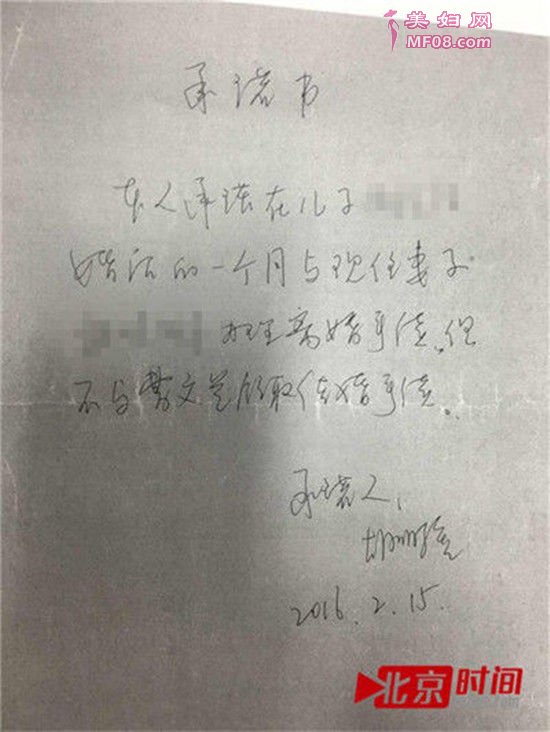 美妇网
MF08.com
承诺书
本人承诺在儿子
婚后的一个月与现任妻子
办理离婚手续。但
不与曹文兰领取结婚手续。
承诺人：
2016.2.15.
北京时间